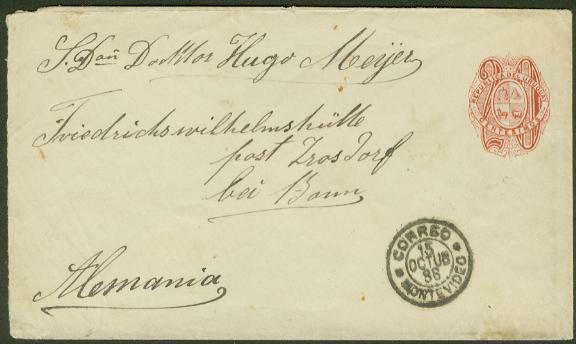 S. Dañ Docktor Hugo Meijer
Friedrichswilhelmshütte
post Trosdorf
bei Bonn
Alemania
REPUBLICA DEL URUGUAY
CENTESIMOS
CORREO
15
OCTUB
86
MONTEVIDEO